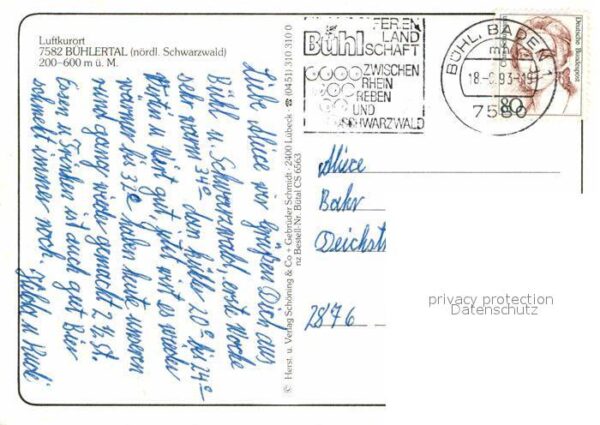 Luftkurort
7582 BÜHLERTAL (nördl. Schwarzwald)
200–600 m ü. M.
Liebe Alice wir grüßen Dich aus
Bühl u. Schwarzwald, erste Woche
sehr warm 37° dann kühler 20° bis 24°
Wetter hier gut, jetzt wird es wieder
wärmer bis 32° haben heute unseren
Waldgang wieder gemacht 2 ½ St.
Essen u. Trinken ist auch gut Bier
schmeckt immer noch.
© Herst. u. Verlag Schöning & Co + Gebrüder Schmidt · 2400 Lübeck · ☎ (0451) 310 310 0
nz Bestell-Nr. Bütal CS 6563
FERIEN
LAND
Bühl SCHAFT
ZWISCHEN
RHEIN
REBEN
UND
SCHWARZWALD
BÜHL, BADEN 1
mh
7580
Deutsche Bundespost
80
Alice
Bahr
Deichst
2876
privacy protection
Datenschutz